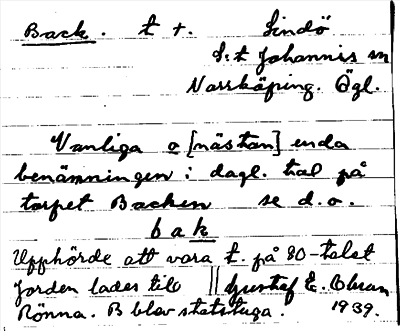 Back. t +. Lindö
S:t Johannis sn
Norrköping. Ögl.
Vanliga o [nästan] enda
benämningen i dagl. tal på
torpet Backen se d.o.
bak
Upphörde att vara t. på 80-talet
Jorden lades till || Gustaf E. Ohman
Rönna. B blev statstuga. 1939.